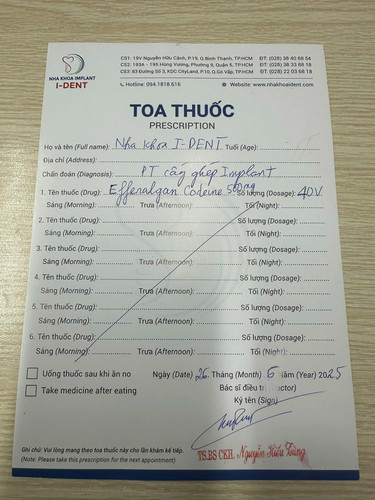 NHA KHOA IMPLANT
I-DENT
CS1: 19V Nguyễn Hữu Cảnh, P.19, Q.Bình Thạnh, TP.HCM ĐT: (028) 38 40 68 54
CS2: 193A - 195 Hùng Vương, Phường 9, Quận 5, TP.HCM ĐT: (028) 38 33 68 18
CS3: 83 Đường Số 3, KDC CityLand, P.10, Q.Gò Vấp, TP.HCM ĐT: (028) 22 03 68 18
Hotline: 094.1818.616 Website: www.nhakhoaident.com
TOA THUỐC
PRESCRIPTION
Họ và tên (Full name): Nha khoa I-DENT Tuổi (Age):
Địa chỉ (Address):
Chẩn đoán (Diagnosis): PT cấy ghép Implant
1. Tên thuốc (Drug): Efferalgan Codeine 500mg Số lượng (Dosage): 40V
Sáng (Morning): Trưa (Afternoon): Tối (Night):
2. Tên thuốc (Drug): Số lượng (Dosage):
Sáng (Morning): Trưa (Afternoon): Tối (Night):
3. Tên thuốc (Drug): Số lượng (Dosage):
Sáng (Morning): Trưa (Afternoon): Tối (Night):
4. Tên thuốc (Drug): Số lượng (Dosage):
Sáng (Morning): Trưa (Afternoon): Tối (Night):
5. Tên thuốc (Drug): Số lượng (Dosage):
Sáng (Morning): Trưa (Afternoon): Tối (Night):
6. Tên thuốc (Drug): Số lượng (Dosage):
Sáng (Morning): Trưa (Afternoon): Tối (Night):
Uống thuốc sau khi ăn no Ngày (Date) 26 Tháng (Month) 6 năm (Year) 2025
Take medicine after eating Bác sĩ điều trị
Ký tên (Sign)
TS.BS CKII. Nguyễn Hiếu Tùng
Ghi chú: Vui lòng mang theo toa thuốc này cho lần khám kế tiếp.
(Note: Please take this prescription for the next appointment)